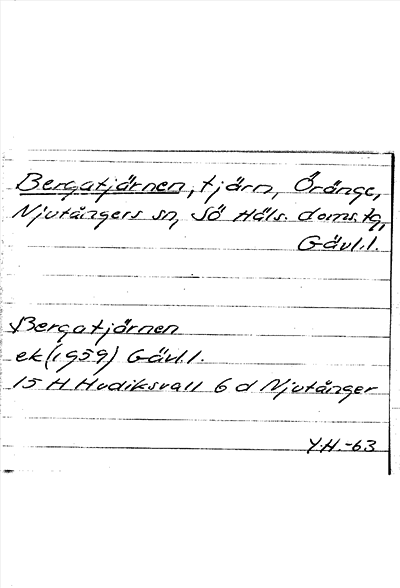 Bergatjärnen, tjärn, Öränge,
Njutångers sn, Sö Häls. doms.tg,
Gävl.l.
Bergatjärnen
ek (1959) Gävl.l.
15 H Hudiksvall 6 d Njutånger
Y.H.-63